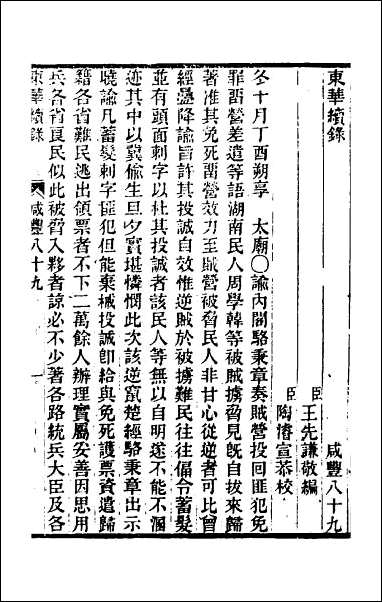 東華續錄
咸豐八十九
臣王先謙敬編
臣陶濬宣恭校
冬十月丁酉朔享　太廟〇諭內閣駱秉章奏賊營投回匪犯免
罪留營差遣等語湖南民人周學韓等被賊擄脅見旣自拔來歸
著准其免死留營效力至賊營被脅民人非甘心從逆者可比曾
經疊降諭旨許其投誠自效惟逆賊於被擄難民往往偪令蓄髮
並有頭面刺字以杜其投誠者該民人等無以自明遂不能不溷
迹其中以冀偸生旦夕實堪憐憫此次該逆竄楚經駱秉章出示
曉諭凡蓄髮刺字匪犯但能棄械投誠卽給與免死護票資遣歸
籍各省難民逃出領票者不下二萬餘人辦理實屬安善因思用
兵各省良民似此被脅入夥者諒必不少著各路統兵大臣及各
東華續錄　咸豐八十九　一